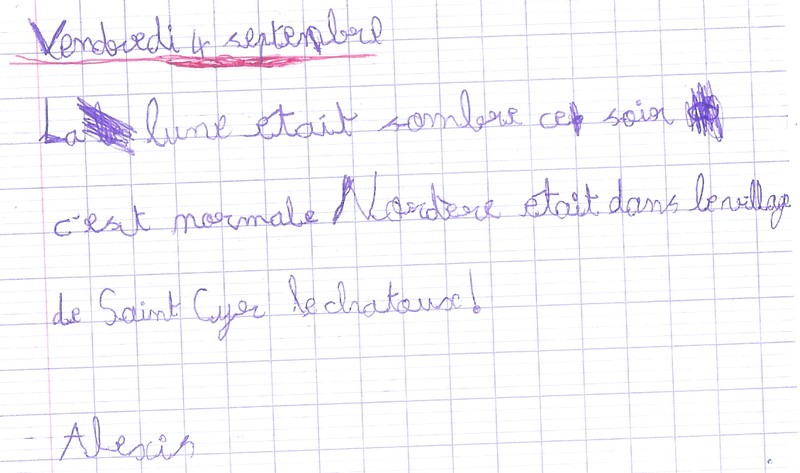 Vendredi 4 septembre
La lune etait sombre ce soir
c'est normale Nordère était dans le village
de Saint Cyer le chatoux!
Alexis